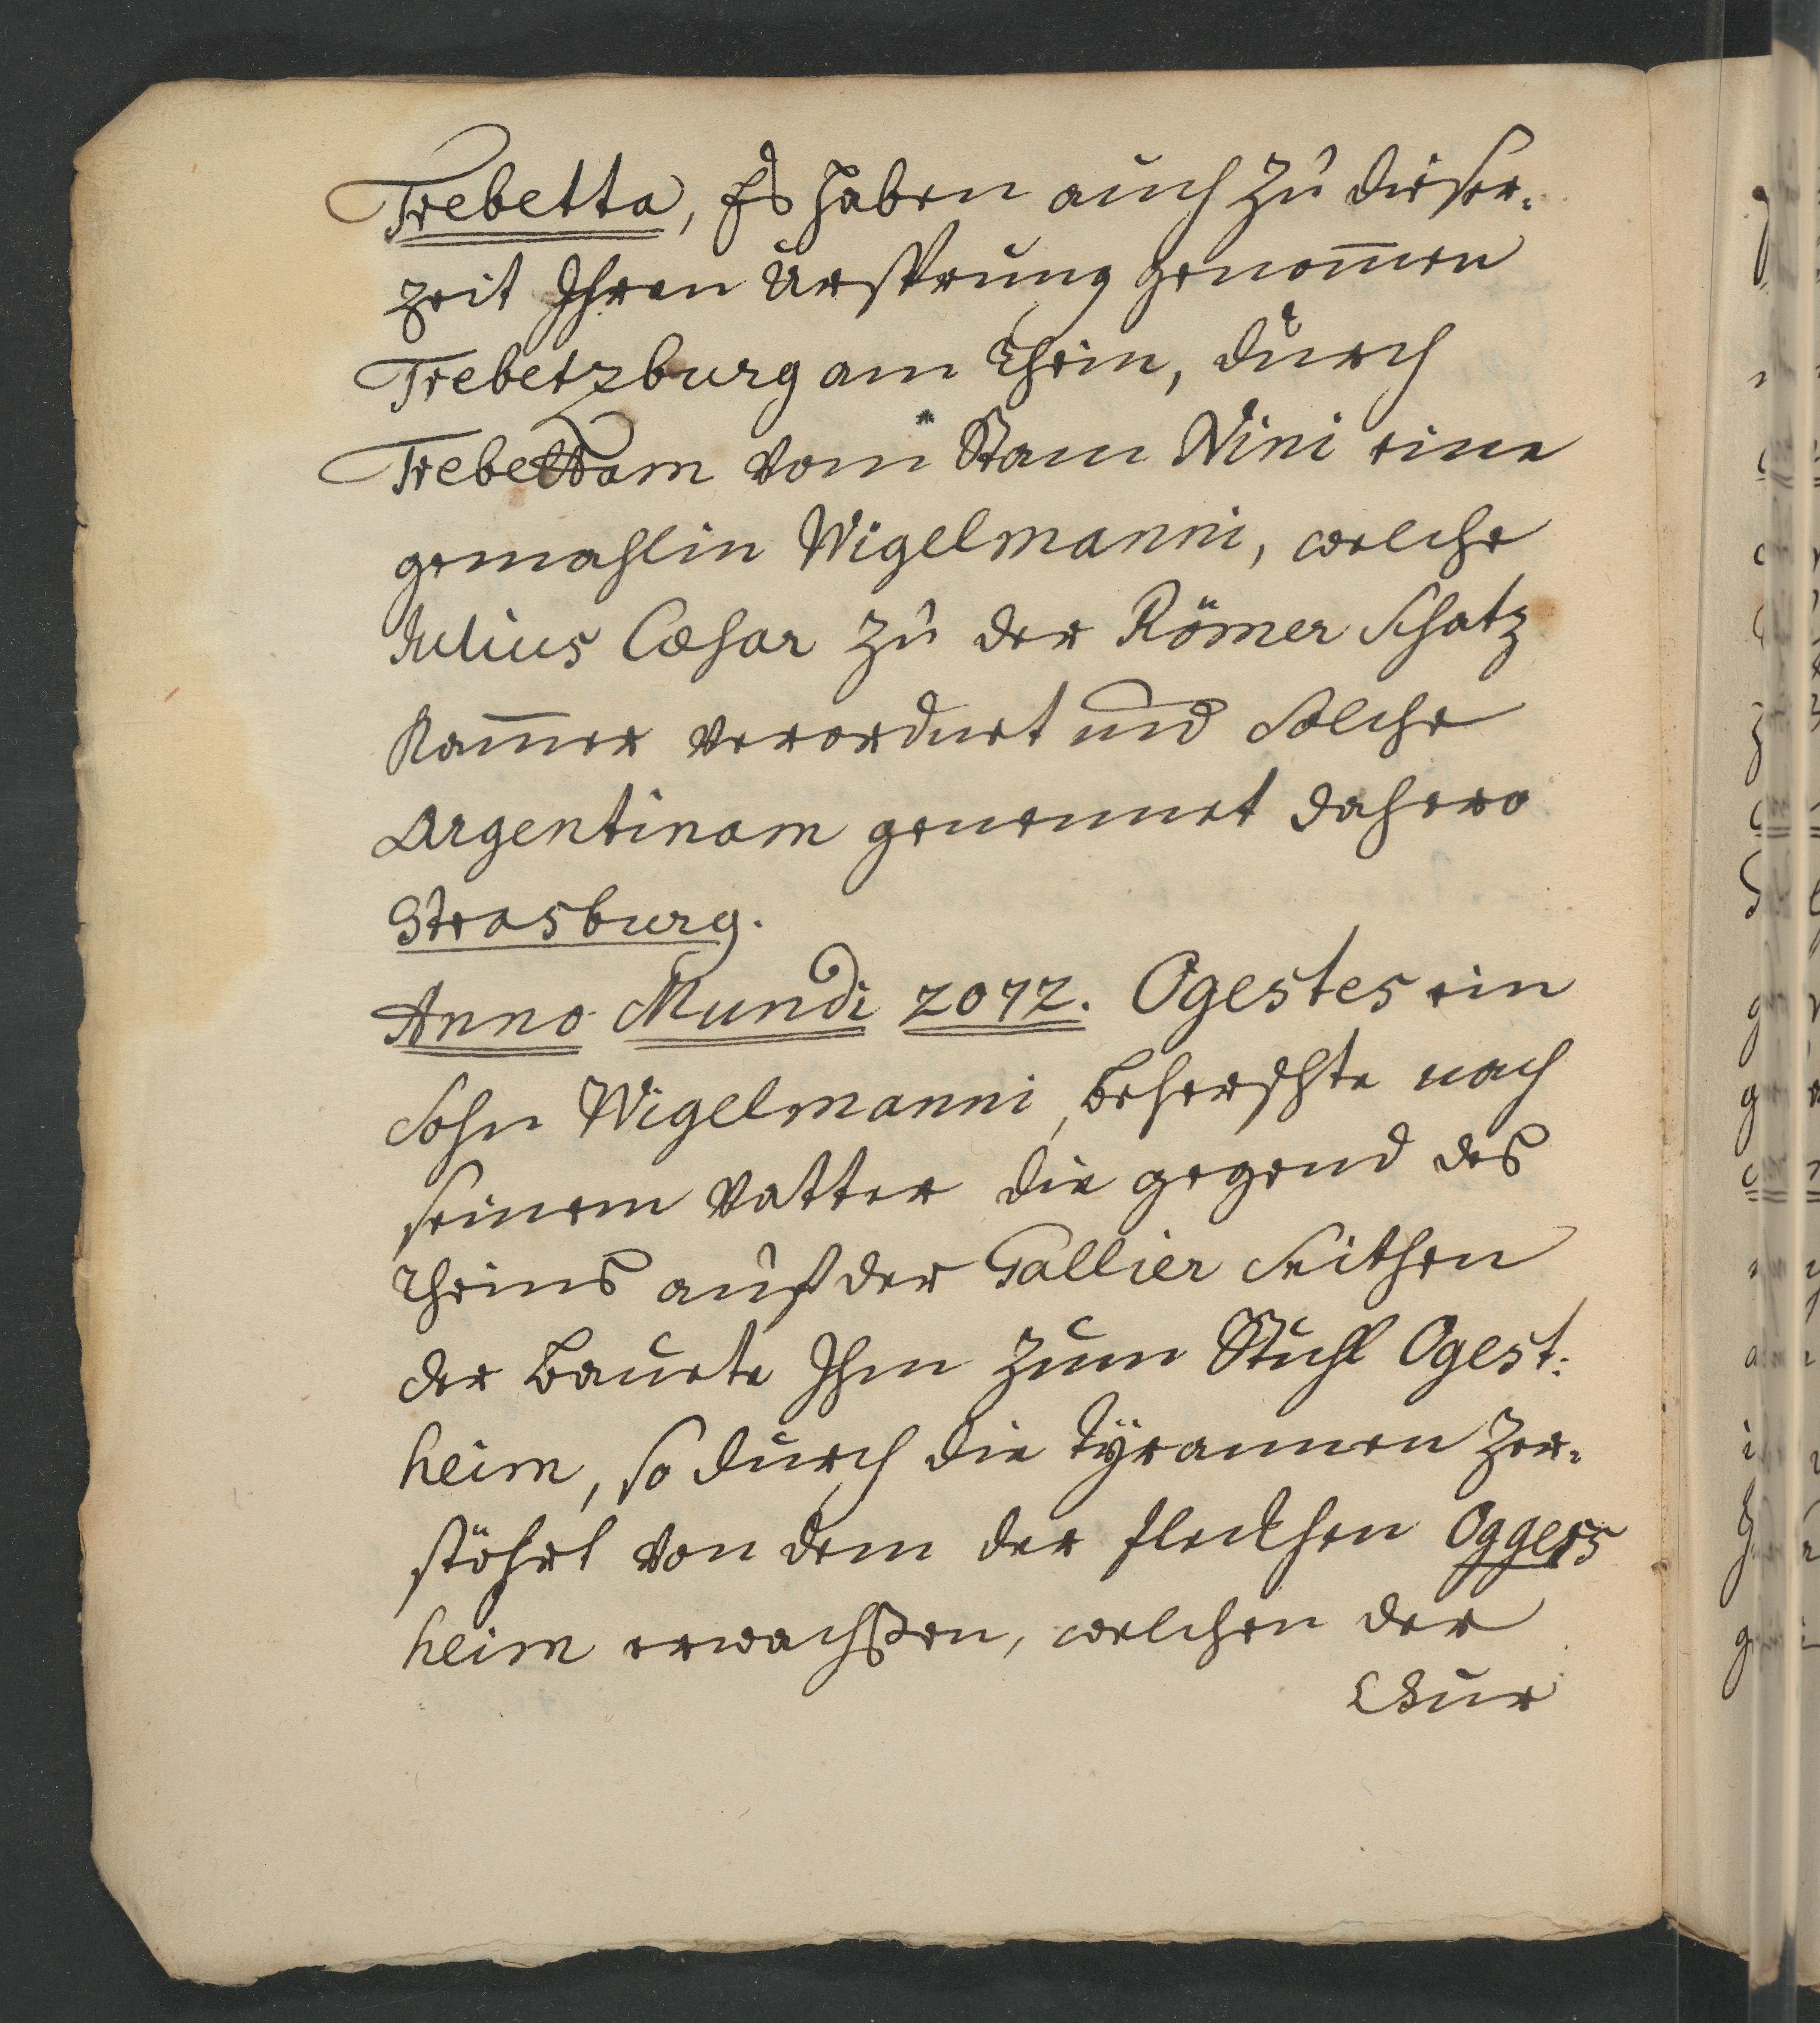 Trebetta, Es haben auch zu dieser-
zeit Ihren Ursprung genom̄en
Trebetzburg am Rhein, durch
Trebettam vom Stam Nini eine
gemahlin Wigelmanni, welche
Julius Cæsar zu der Römer Schatz
Kam̄er verordnet und Solche
Argentinam genennet dahero
Strasburg.
Anno Mundi 2072. Ogestes ein
Sohn Wigelmanni, beherschte nach
seinem Vatter die gegend des
Rheins auf der Gallier Seithen
der bauete Ihm zum Stuhl Ogest:
heim, so durch die Tÿrannen zer-
stöhrt von dem der fleckhen Oggers
heim erwachßen, welchen der
Chur